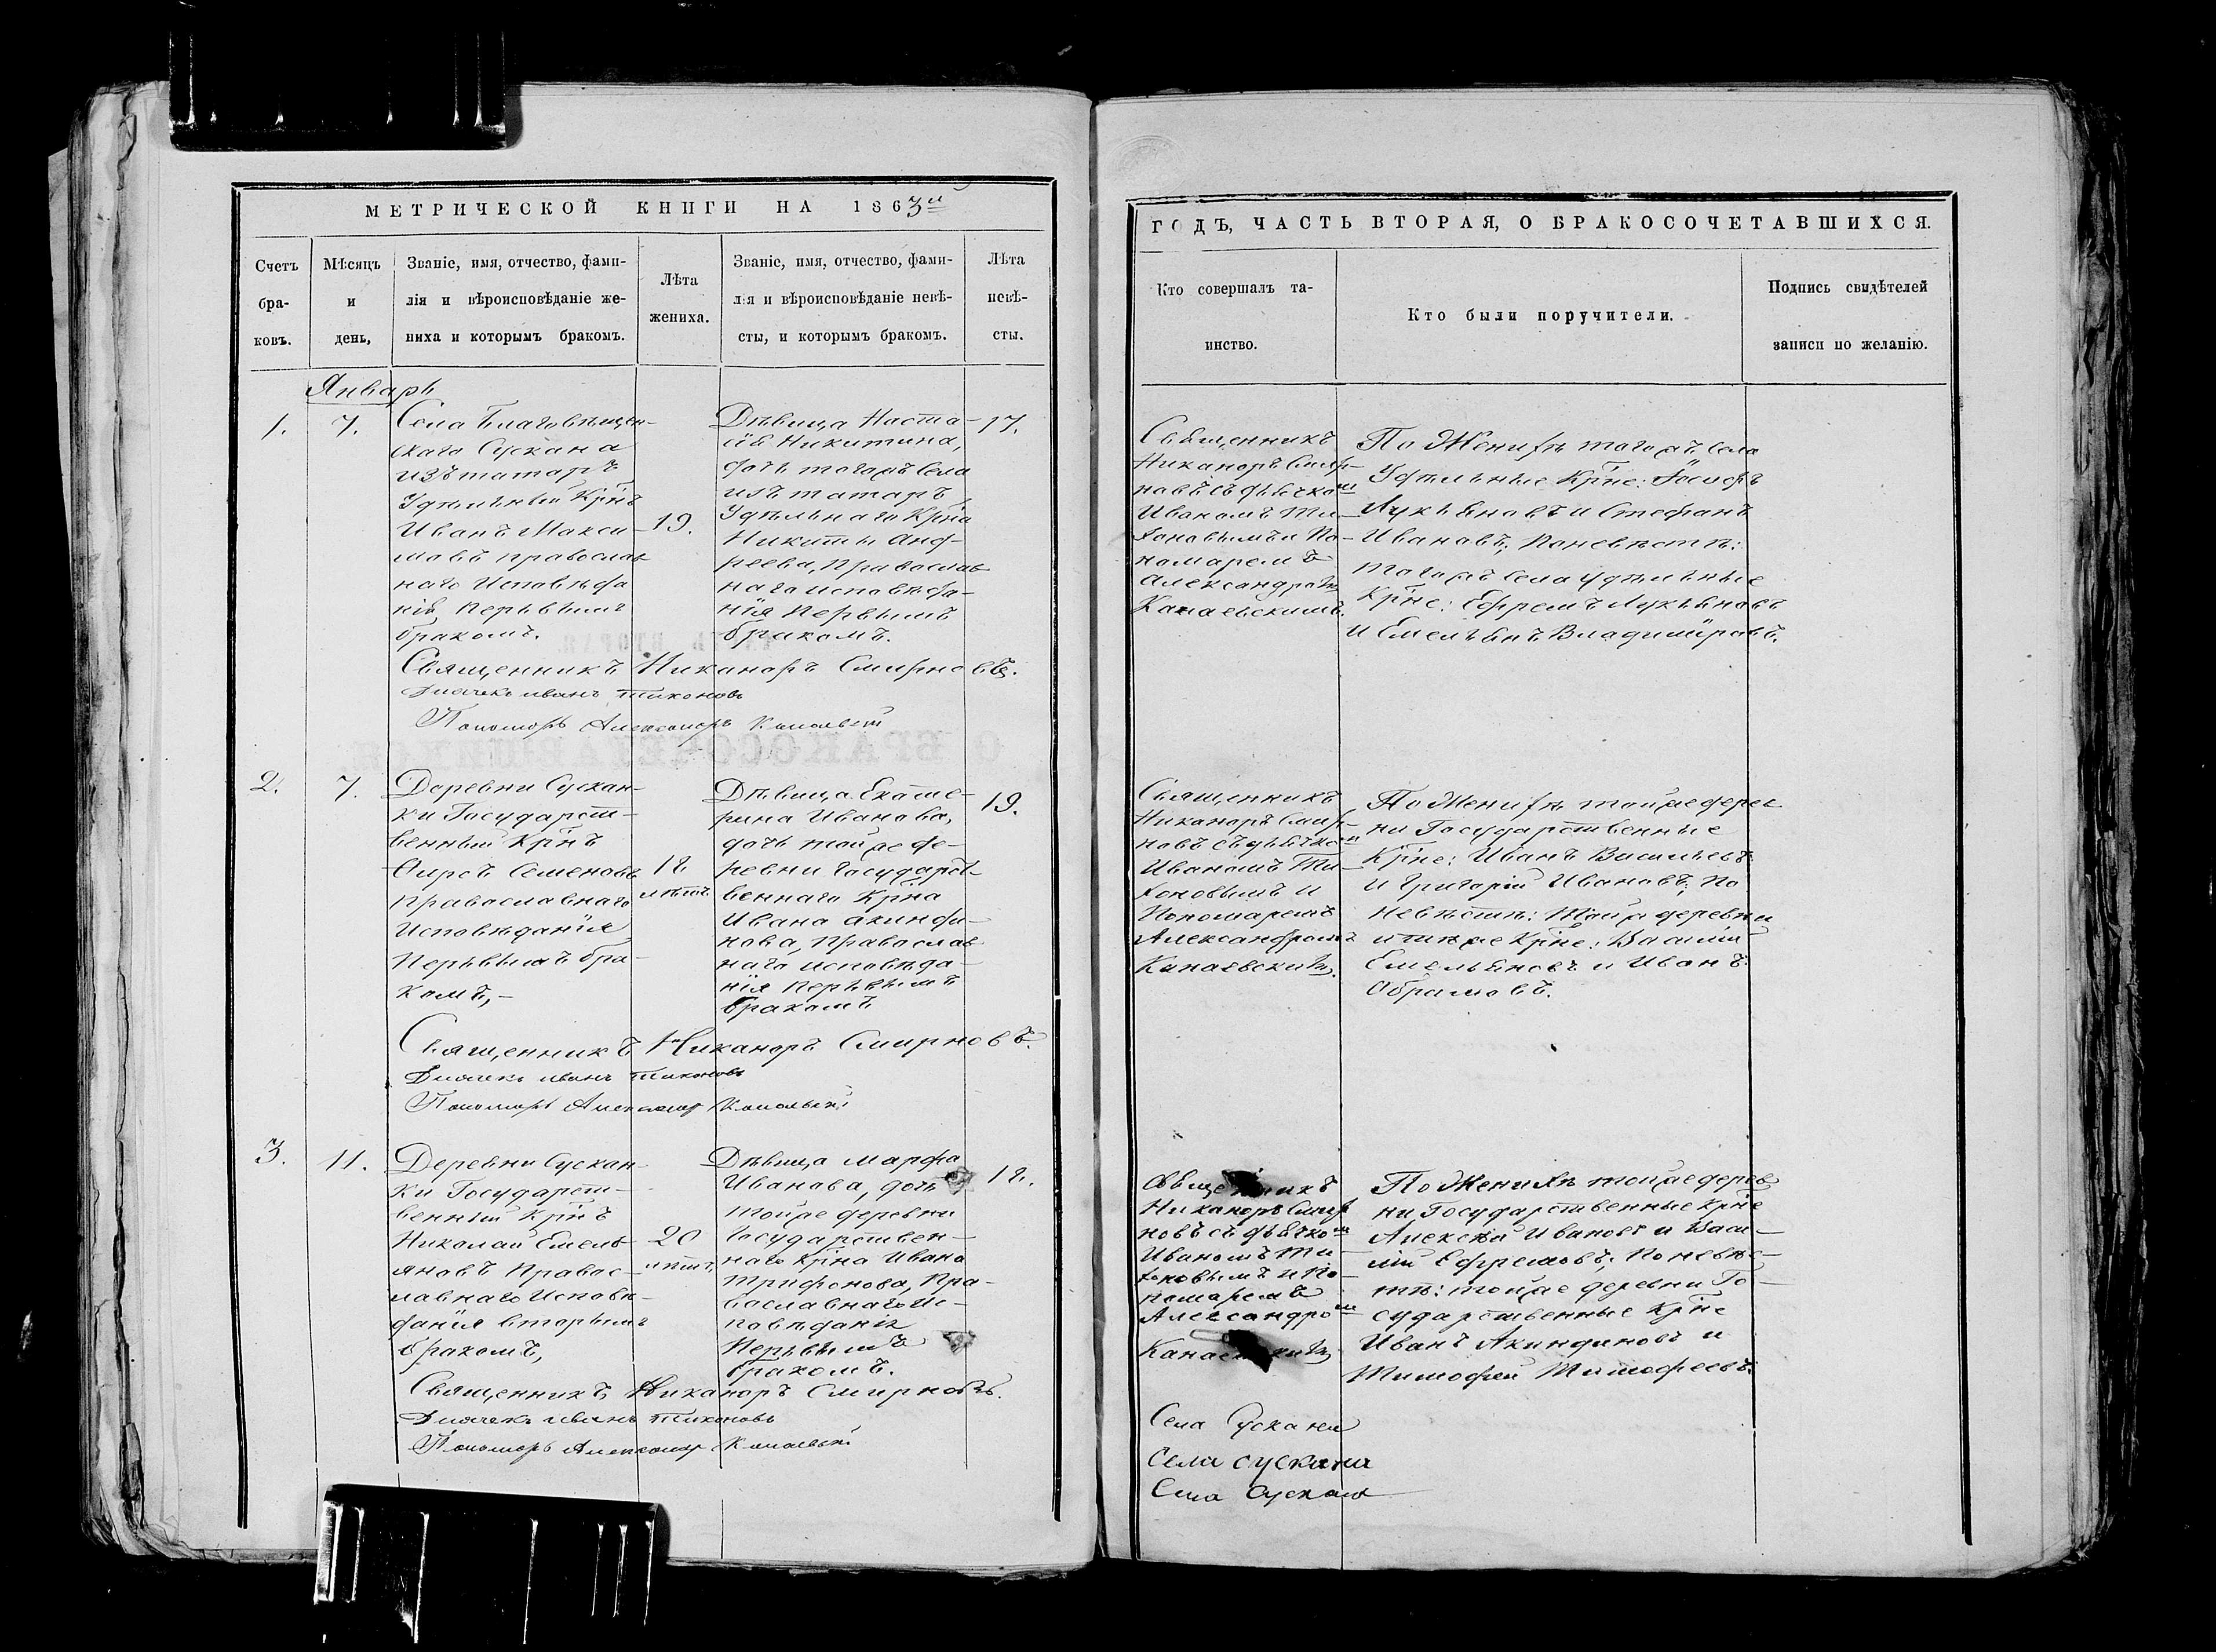 МЕТРИЧЕСКОЙ КНИГИ НА 1863й
Счетъ бра- ковъ.
Мѣсяцъ и день,
Званіе, имя, отчество, фами-
лія и вѣроисповѣданіе же-
ниха и которымъ бракомъ.
Лѣта
жениха.
Званіе, имя, отчество, фами-
лія и вѣроисповѣданіе невѣ-
сты, и которымъ бракомъ.
Лѣта
невѣ-
сты.
Январь
1.
7.
Села Благовѣщен-
скаго Сускана
изъ татаръ
Удѣльный Крнъ
Иванъ Макси-
мовъ православ
наго Исповѣда
нія Первымъ
бракомъ.
19.
Дѣвица Наста-
сія Никитина,
дочь тогожъ Села
изъ татаръ
Удѣльнаго Крна
Никиты Анд-
реева, Православ
наго исповѣда-
нія Первымъ
бракомъ.
17.
Священникъ Никаноръ Смирновъ.
Дьячекъ иванъ тихоновъ
Пономарь Александръ Канаевскій
2.
7.
Деревни Сускан-
ки Государст-
венный Крнъ
Фирсъ Семеновъ
православнаго
Исповѣданія
Первымъ бра-
комъ,-
18
лѣтъ
Дѣвица Екате-
рина Иванова,
дочь тойже де-
ревни Государст-
веннаго Крна
Ивана Акинфи-
нова, Православ
наго исповѣда-
нія Первымъ
бракомъ
19.
Священникъ Никаноръ Смирновъ.
Дьячекъ иванъ тихоновъ
Пономарь Александръ Канаевскій
3.
11.
Деревни Сускан-
ки Государст-
венный Крнъ
Николай Емель
яновъ Правос-
лавнаго Исповѣ-
данія вторымъ
бракомъ,
20
лѣтъ,
Дѣвица Марфа
Иванова, дочь
тойже деревни
Государствен-
наго Крна Ивана
Трифонова, Пра-
вославнаго Ис-
повѣданія
Первымъ
бракомъ.
18.
Священникъ Никаноръ Смирновъ.
Дьячекъ иванъ тихоновъ
Пономарь Александръ Канаевскій
ГОДЪ, ЧАСТЬ ВТОРАЯ, О БРАКОСОЧЕТАВШИХСЯ.
Кто совершалъ та-
инство.
Кто были поручители.
Подпись свидѣтелей
записи по желанію.
Священникъ
Никаноръ Смир-
новъ съ дьячкомъ
Иваномъ Ти-
хоновымъ и По-
номаремъ
Александромъ
Канаевскимъ.
По Женихѣ тогожъ Села
Удѣльные Крне: Іосифъ
Лукьяновъ и Стефанъ
Ивановъ; По невѣстѣ:
тогожъ Села удѣльные
Крне: Ефремъ Лукьяновъ
и Емельянъ Владиміровъ.
Священникъ
Никаноръ Смир-
новъ съ дьячкомъ
Иваномъ Ти-
хоновымъ и
Пономаремъ
Александромъ
Канаевскимъ.
По Женихѣ тойже дерев
ни Государственные
Крне: Иванъ Васильевъ
и Григорій Ивановъ; По
невѣстѣ: Тойже деревни
и тѣже Крне: Василій
Емельяновъ и Иванъ
Абрамовъ.
Священникъ
Никаноръ Смир
новъ съ дьячкомъ
Иваномъ Ти-
хоновымъ и По-
номаремъ
Александромъ
Канаевскимъ
По Женихѣ тойже дерев
ни Государственные Крне
Алексѣй Ивановъ и Васи-
лій Ефремовъ; По невѣс-
тѣ: тойже деревни Го-
сударственные Крне
Иванъ Акиндиновъ и
Тимофей Тимофеевъ.
Села Сускана
Села Сускана
Села Сускана